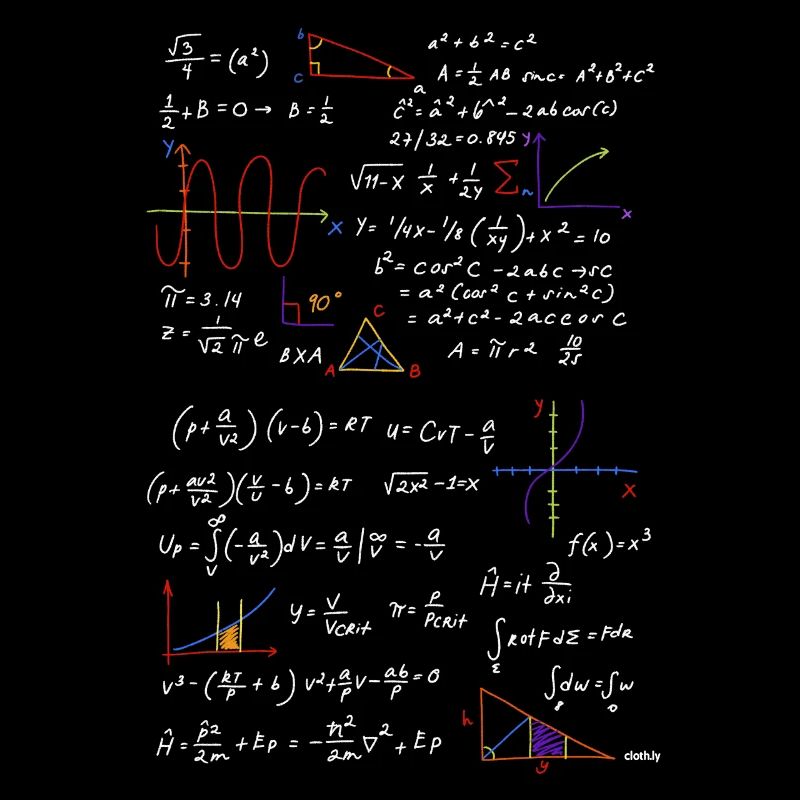 √3/4 = (a²)
b
c
a
a² + b² = c²
A = 1/2 AB sinc = A² + B² + C²
1/2 + B = 0 → B = 1/2
ĉ² = â² + b^² - 2ab cos(c)
27/32 = 0.845
y
x
n
Y
X
√11-x 1/x + 1/2y Σ
Y = 1/4x - 1/8 (1/xy) + x² = 10
b² = cos² C - 2abc → sc
= a² (cos² c + sin² c)
= a² + c² - 2ac cos C
π = 3.14
90°
Z = 1/√2 π e
BXA
C
A
B
A = π r 2 10/25
(p + a/v2) (v - b) = RT
u = CvT - a/v
y
x
(p + av2/v2) (v/u - b) = RT
√2x² - 1 = x
Up = ∫∞v (-a/v²) dV = a/v |∞v = -a/v
f(x) = x³
Ĥ = it ∂/∂xi
y = V/VCRit
π = P/PCRit
∫Σ Rot F dΣ = FdR
v³ - (RT/P + b) v² + a/P v - ab/P = 0
∫dw = ∫w
Ĥ = p̂2/2m + Ep = -ħ²/2m ∇² + Ep
h
y
cloth.ly